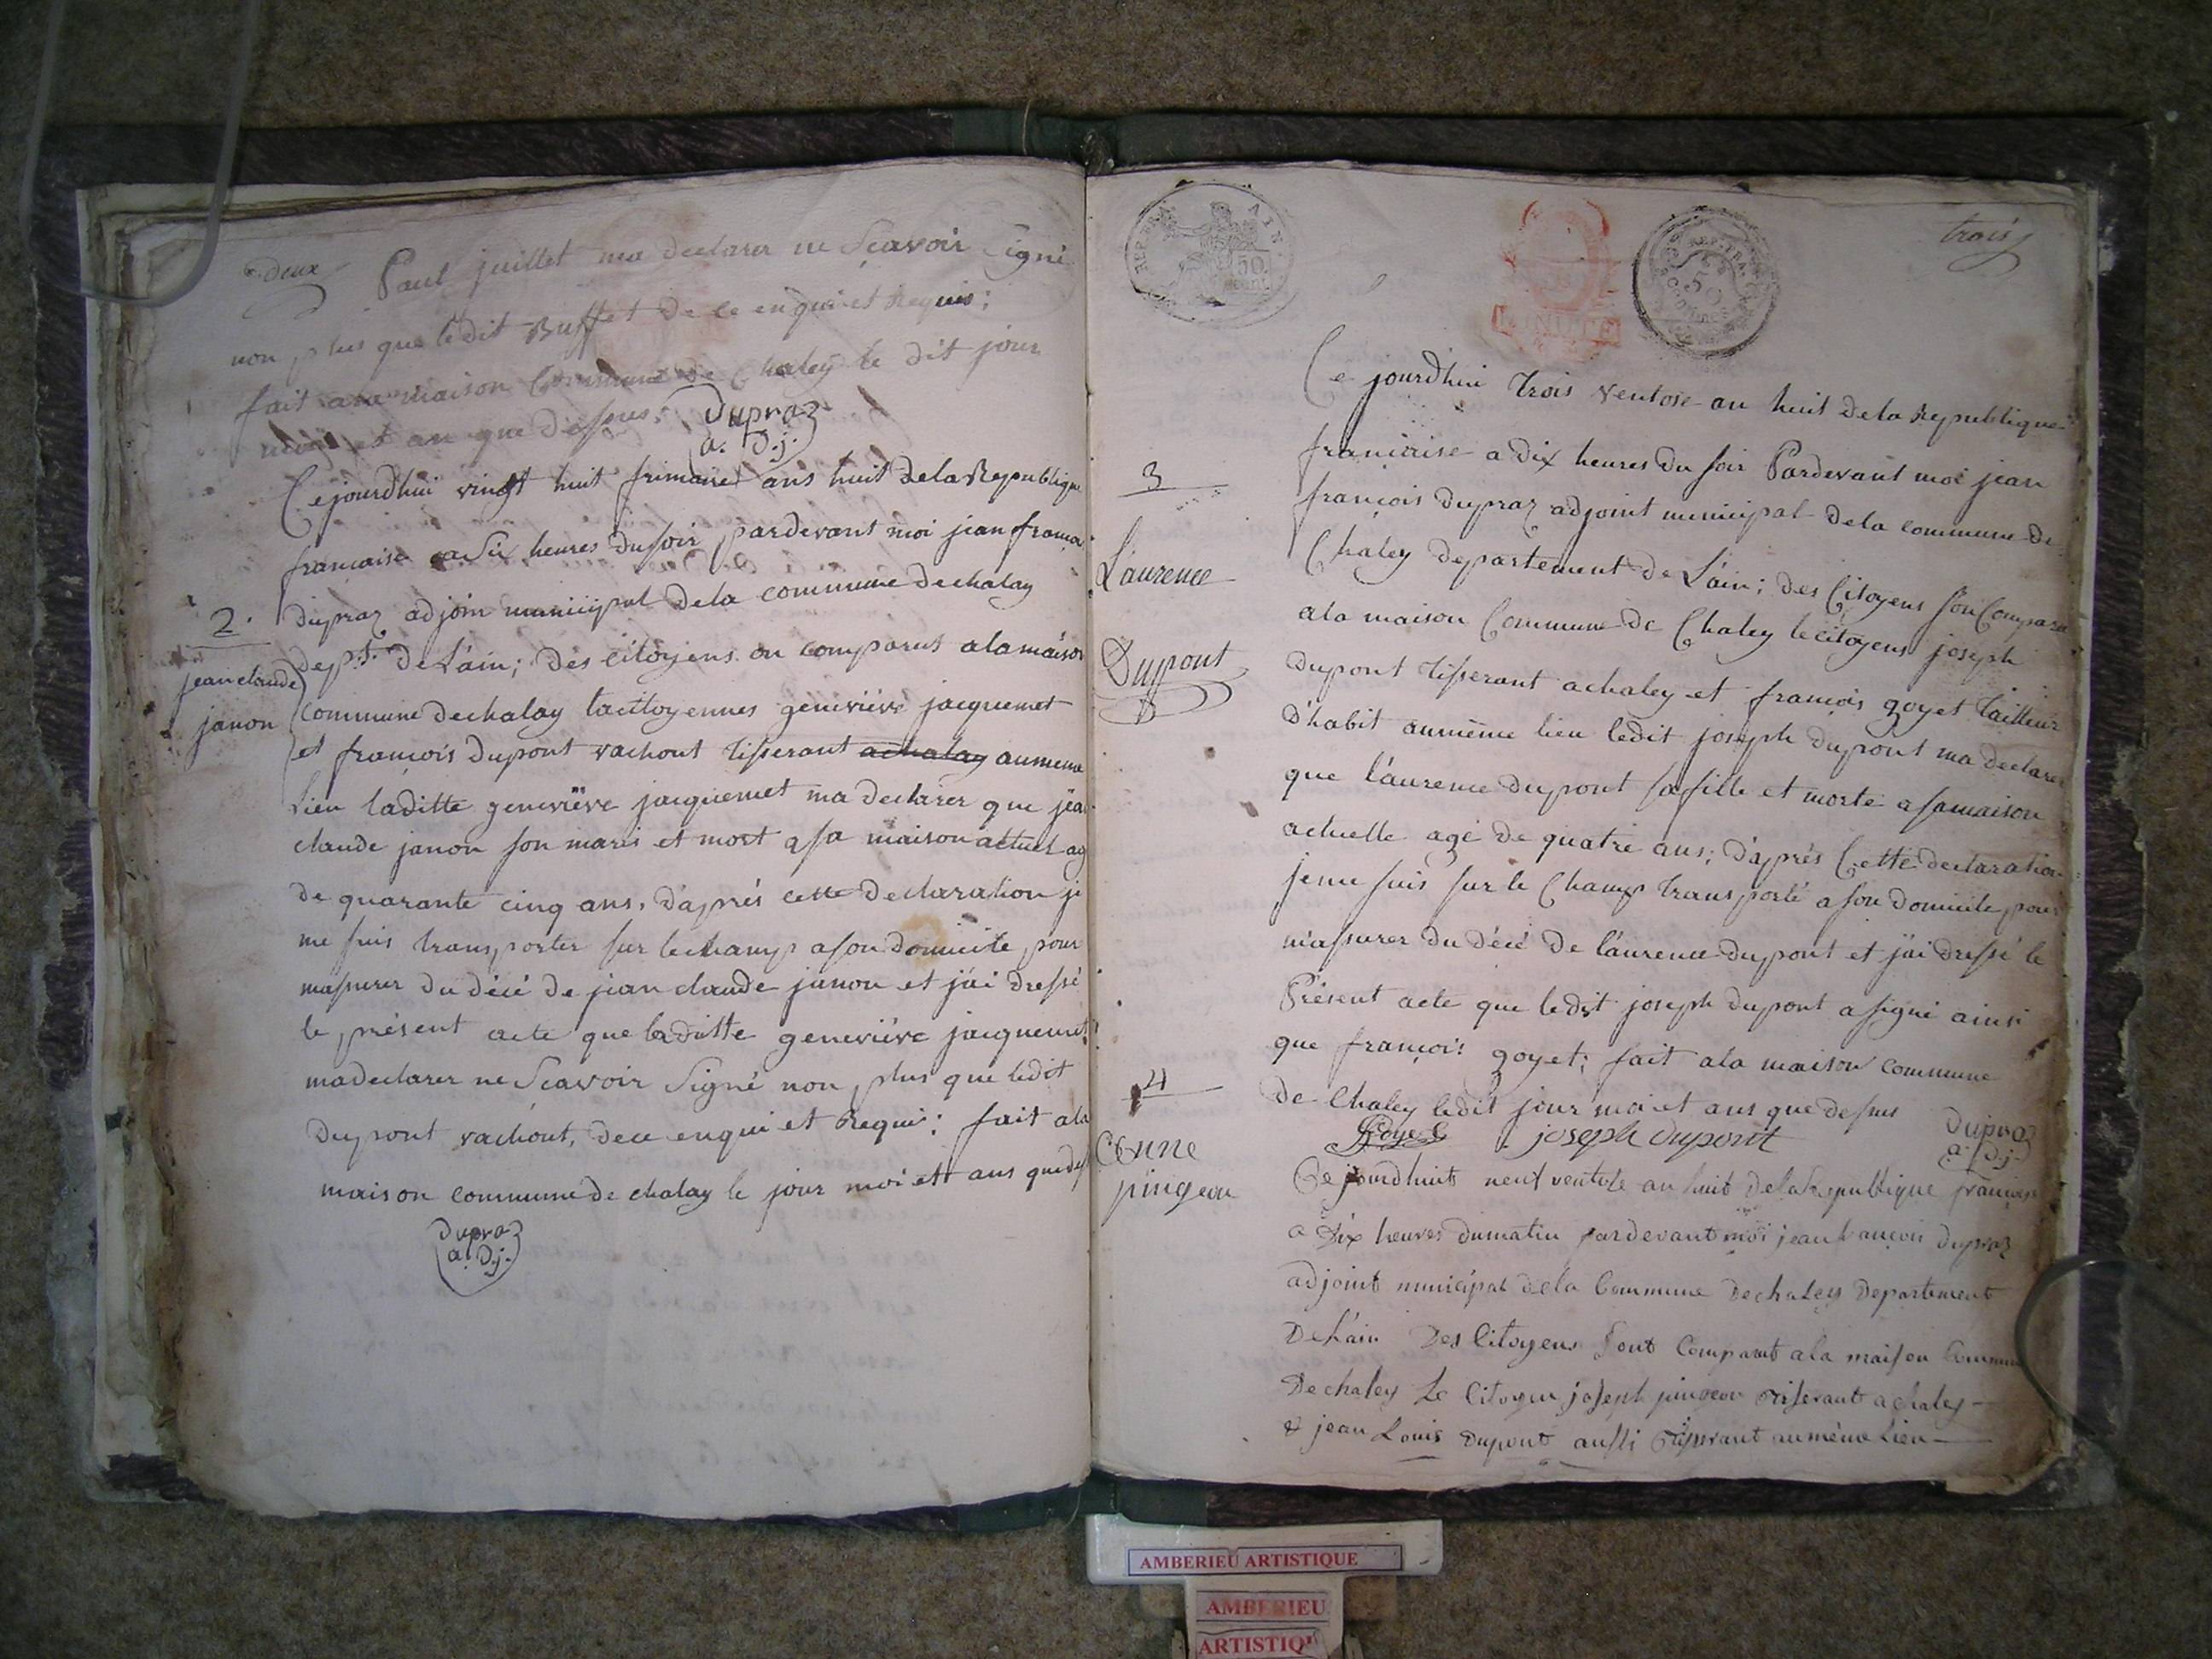 deux
Paul juillet ma declarer ne Sçavoir Signé
non plus que ledit Buffet de ce enquiret Requis;
fait a la maison Commune de Chaley le dit jour
mois et an que dessus. Dupraz
a. dj.
Cejourdhui vingt huit frimaire ans huit dela Republique
francaise a Six heures du soir pardevant moi jean françoi
dupraz adjoin municipal dela commune dechalay
2.
dept. De L'ain; des citoyens on comparus alamaison
jean claude
janon
commune dechalay lacitoyennes geneviéve jacquemet
et françois dupont vachout tisserant achalay aumeme
Lieu laditte geneviéve jacquemet ma declarer que jean
claude janon son maris et mort a sa maison actuel ag
de quarante cinq ans, d'aprés cette declaration je
me suis transporter sur lechamp a son domicile pour
massurer du décé de jean claude janon et j'ai dressé
le présent acte que laditte geneviéve jacquemet
madeclarer ne Scavoir Signé non plus que ledit
dupont vachout, dece enqui et Requi; fait ala
maison commune de chalay le jour moi ett ans quedes
dupraz
a. dj.
REP. FRA. AIN.
50.
REP. FRA.
50
CENTIMES
trois
Ce jourdhui trois ventose an huit dela Republique
francaise a dix heures du soir Pardevant moi jean
3
françois dupraz adjoint municipal dela commune de
Chaley departement de L'ain; des Citoyens son Comparu
Laurence
ala maison Commune de Chaley lecitoyens joseph
Dupont
dupont tisserant achaley et françois goyet tailleur
d'habit aumême lieu ledit joseph dupont ma declarer
que l'aurence dupont sa fille et morte a samaison
actuelle agé de quatre ans; d'aprés Cette declaration
jeme suis sur le Champ transporté a son domicile pour
m'assurer du décé de l'aurence dupont et j'ai dressé le
Présent acte que ledit joseph dupont a signé ainsi
que françois goyet; fait ala maison commune
4
de Chaley ledit jour moi et ans que dessus
Goyet joseph dupont dupraz
a. dj.
pingeon
Ce jourdhuit neuf ventose an huit dela Republique françoise
a Dix heures dumatin pardevant moi jean françois dupraz
adjoint municipal dela Commune Dechaley Departement
DeL'ain Des Citoyens sont Comparut ala maison Commun
Dechaley Le Citoyen joseph pingeon Tiserant achaley
& jean Louis Dupont aussi Tisserant aumême Lieu
AMBERIEU ARTISTIQUE
AMBERIEU
ARTISTIQU